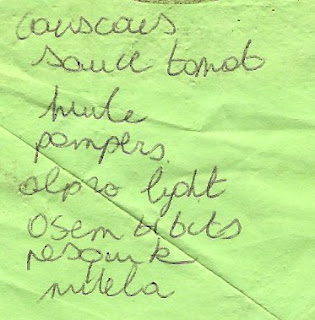 couscous
sauce tomat
huile
pampers
alpro light
Osem bibits
nesquik
nutela